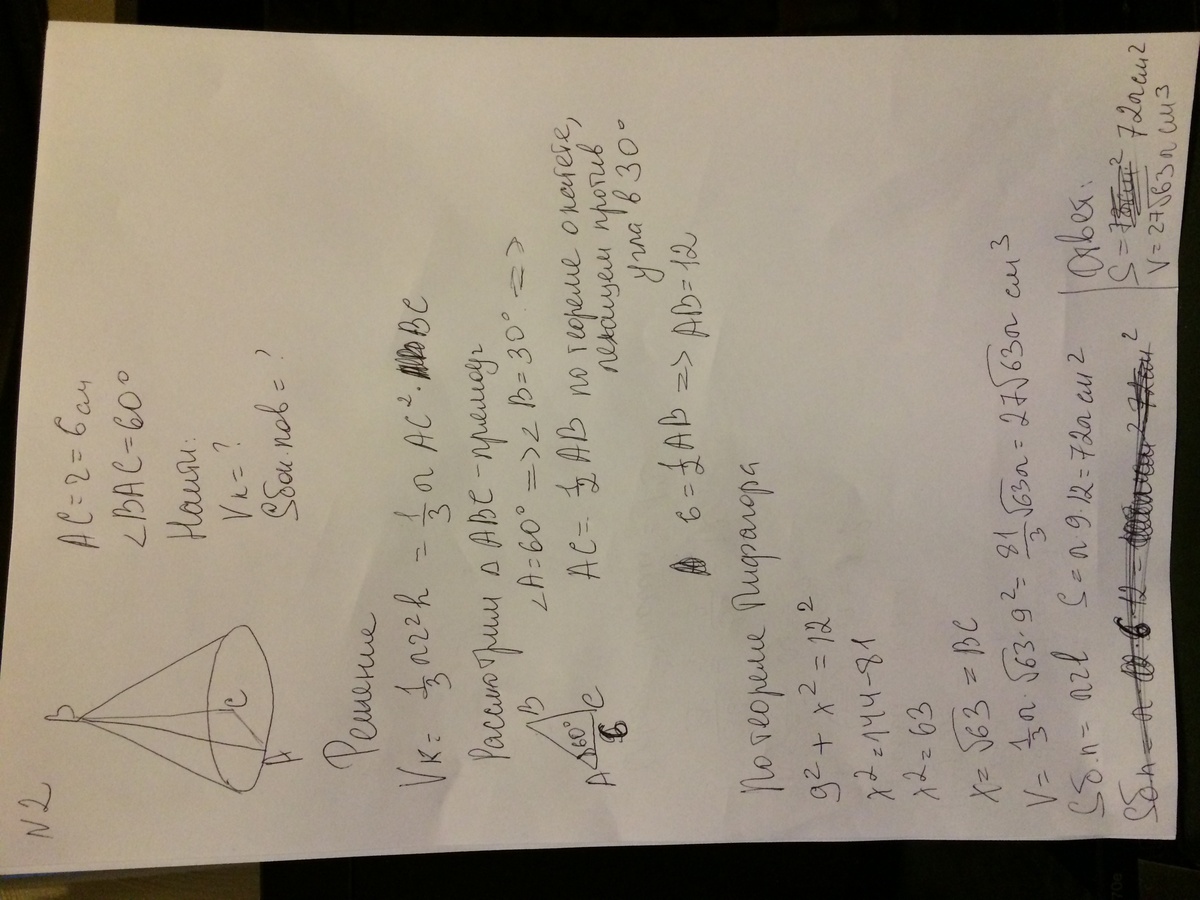 N2
B
C
A
AC = r = 6 см
∠BAC = 60°
Найти:
Vк = ?
Sбок.пов = ?
Решение
Vк = 1/3 πr²h = 1/3 π AC² · BC
Рассмотрим △ABC - прямоуг
∠A = 60° => ∠B = 30° =>
A 60° B C 6
AC = 1/2 AB по теореме о катете,
лежащем против
угла в 30°
6 = 1/2 AB => AB = 12
По теореме Пифагора
9² + x² = 12²
x² = 144 - 81
x² = 63
x = √63 = BC
V = 1/3 π · √63 · 9² = 81/3 √63 π = 27√63 π см³
Sб.п = πrl S = π · 9 · 12 = 72π см²
Sбп = π · 6 · 12 = 72см²
Ответ:
S = 72π см²
V = 27√63 π см³